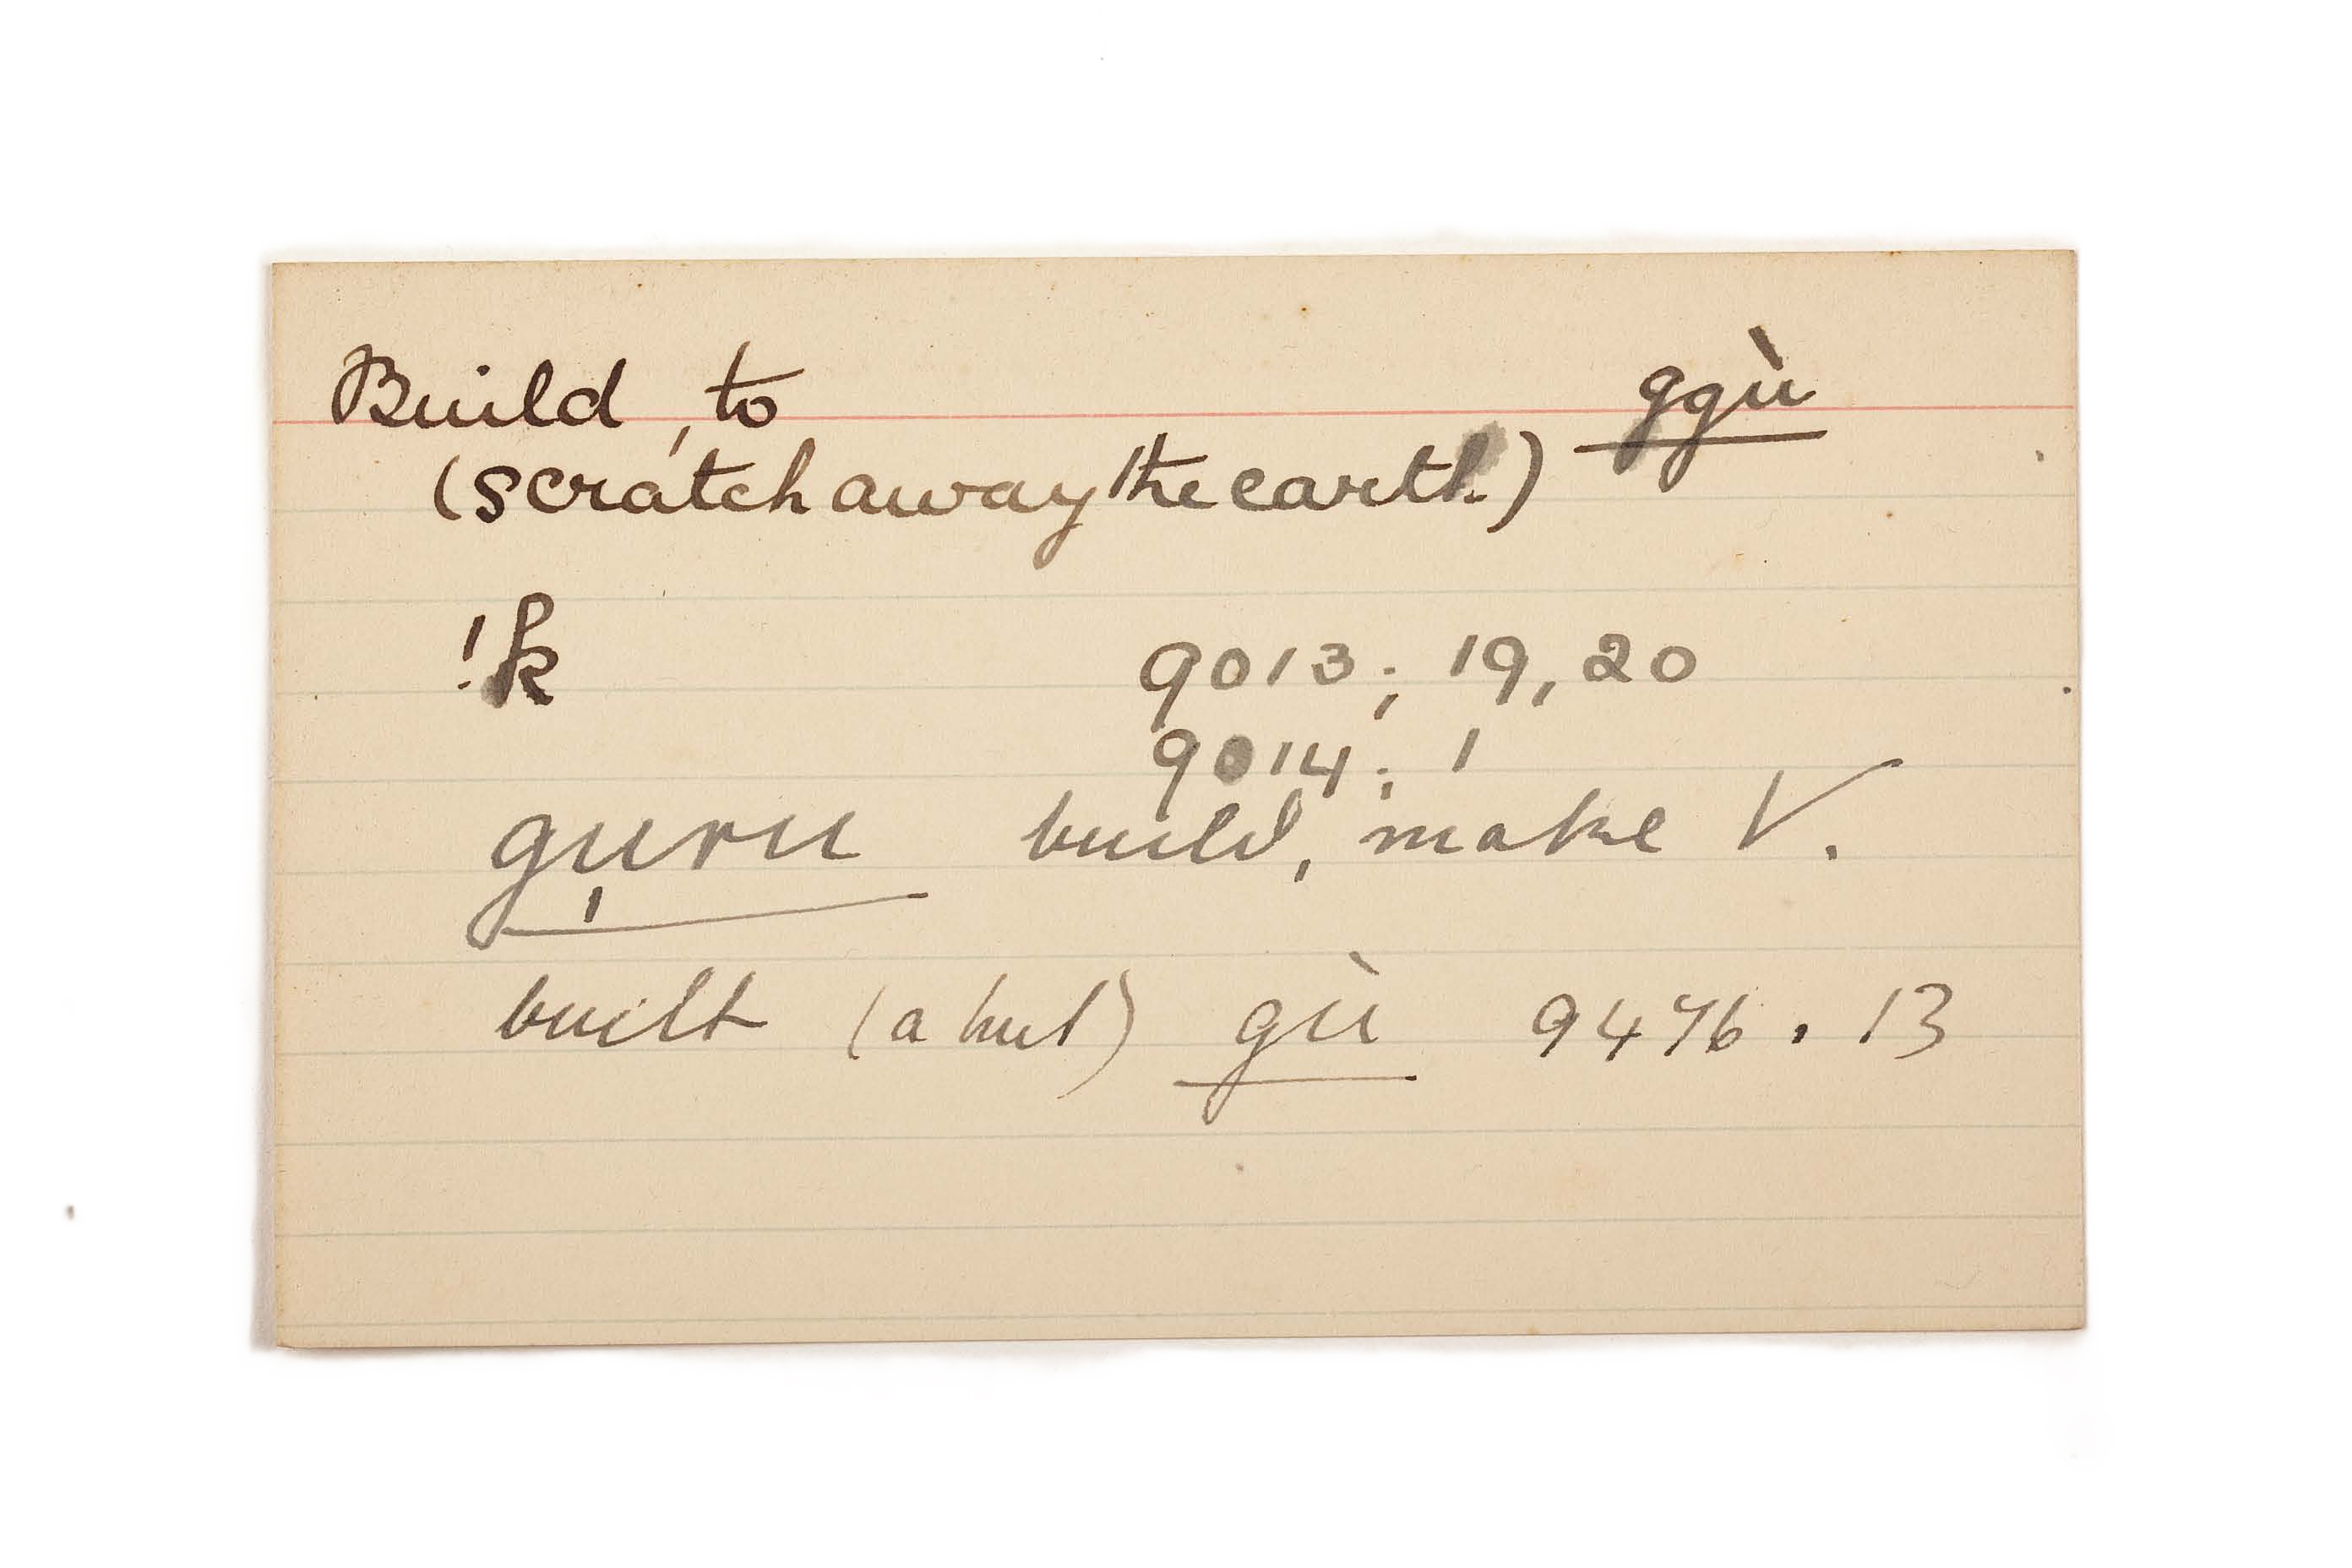 Build, to ggù
(scratch away the earth)
!k 9013; 19, 20
9014; 1
gu̩ru build, make V.
built (a hut) gù 9476. 13